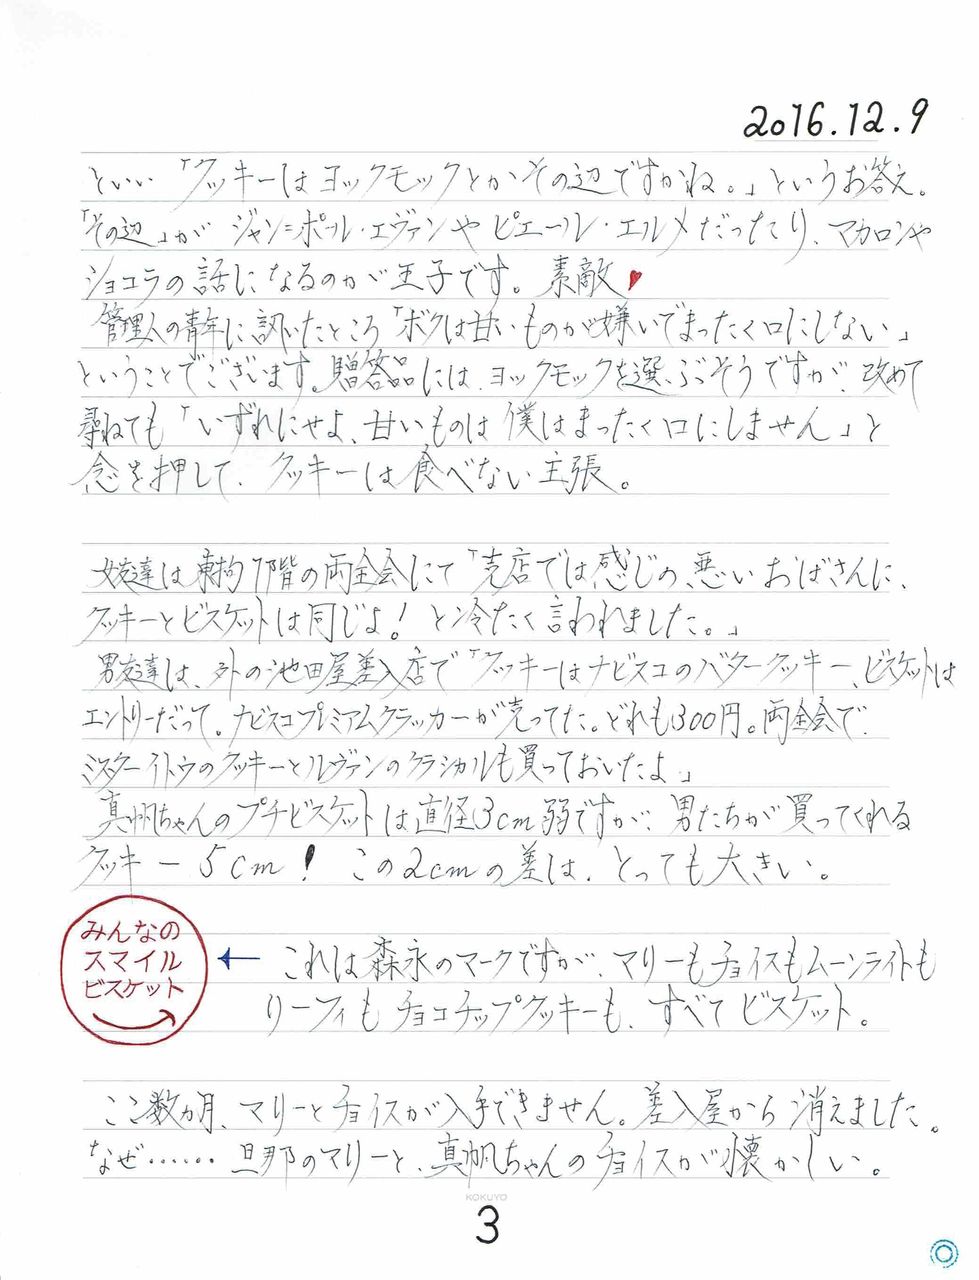 2016.12.9
といい「クッキーはヨックモックとかその辺ですかね。」というお答え。
「その辺」が ジャン=ポール・エヴァンやピエール・エルメだったり、マカロンや
ショコラの話になるのが王子です。素敵♥
管理人の青年に訊いたところ「ボクは甘いものが嫌いでまったく口にしない」
ということでございます。贈答品には、ヨックモックを選ぶそうですが、改めて
尋ねても「いずれにせよ、甘いものは僕はまったく口にしません」と
念を押して、クッキーは食べない主張。
女友達は東拘1階の両全会にて「売店では感じの悪いおばさんに、
クッキーとビスケットは同じよ! と冷たく言われました。」
男友達は、外の池田屋差入店で「クッキーはナビスコのバタークッキー、ビスケットは
エントリーだって。ナビスコプレミアムクラッカーが売ってた。どれも300円。両全会で
ミスターイトウのクッキーとルヴァンのクラシカルも買っておいたよ」
真帆ちゃんのプチビスケットは直径3cm弱ですが、男たちが買ってくれる
クッキー ー 5cm! この2cmの差は、とっても大きい。
みんなの
スマイル
ビスケット
← これは森永のマークですが、マリーもチョイスもムーンライトも
リーフィもチョコチップクッキーも、すべてビスケット。
ここ数カ月、マリーとチョイスが入手できません。差入屋から消えました。
なぜ……旦那のマリーと、真帆ちゃんのチョイスが懐かしい。
KOKUYO
3